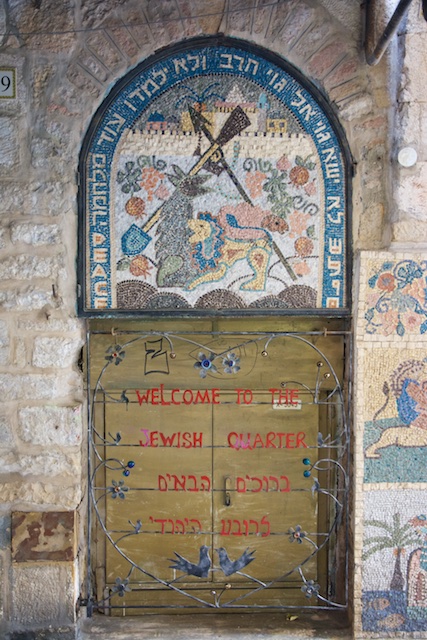 לא ישא גוי אל גוי חרב ולא ילמדו עוד מלחמה PEACE
9
WELCOME TO THE
JEWISH QUARTER
ברוכים הבאים
לרובע היהודי